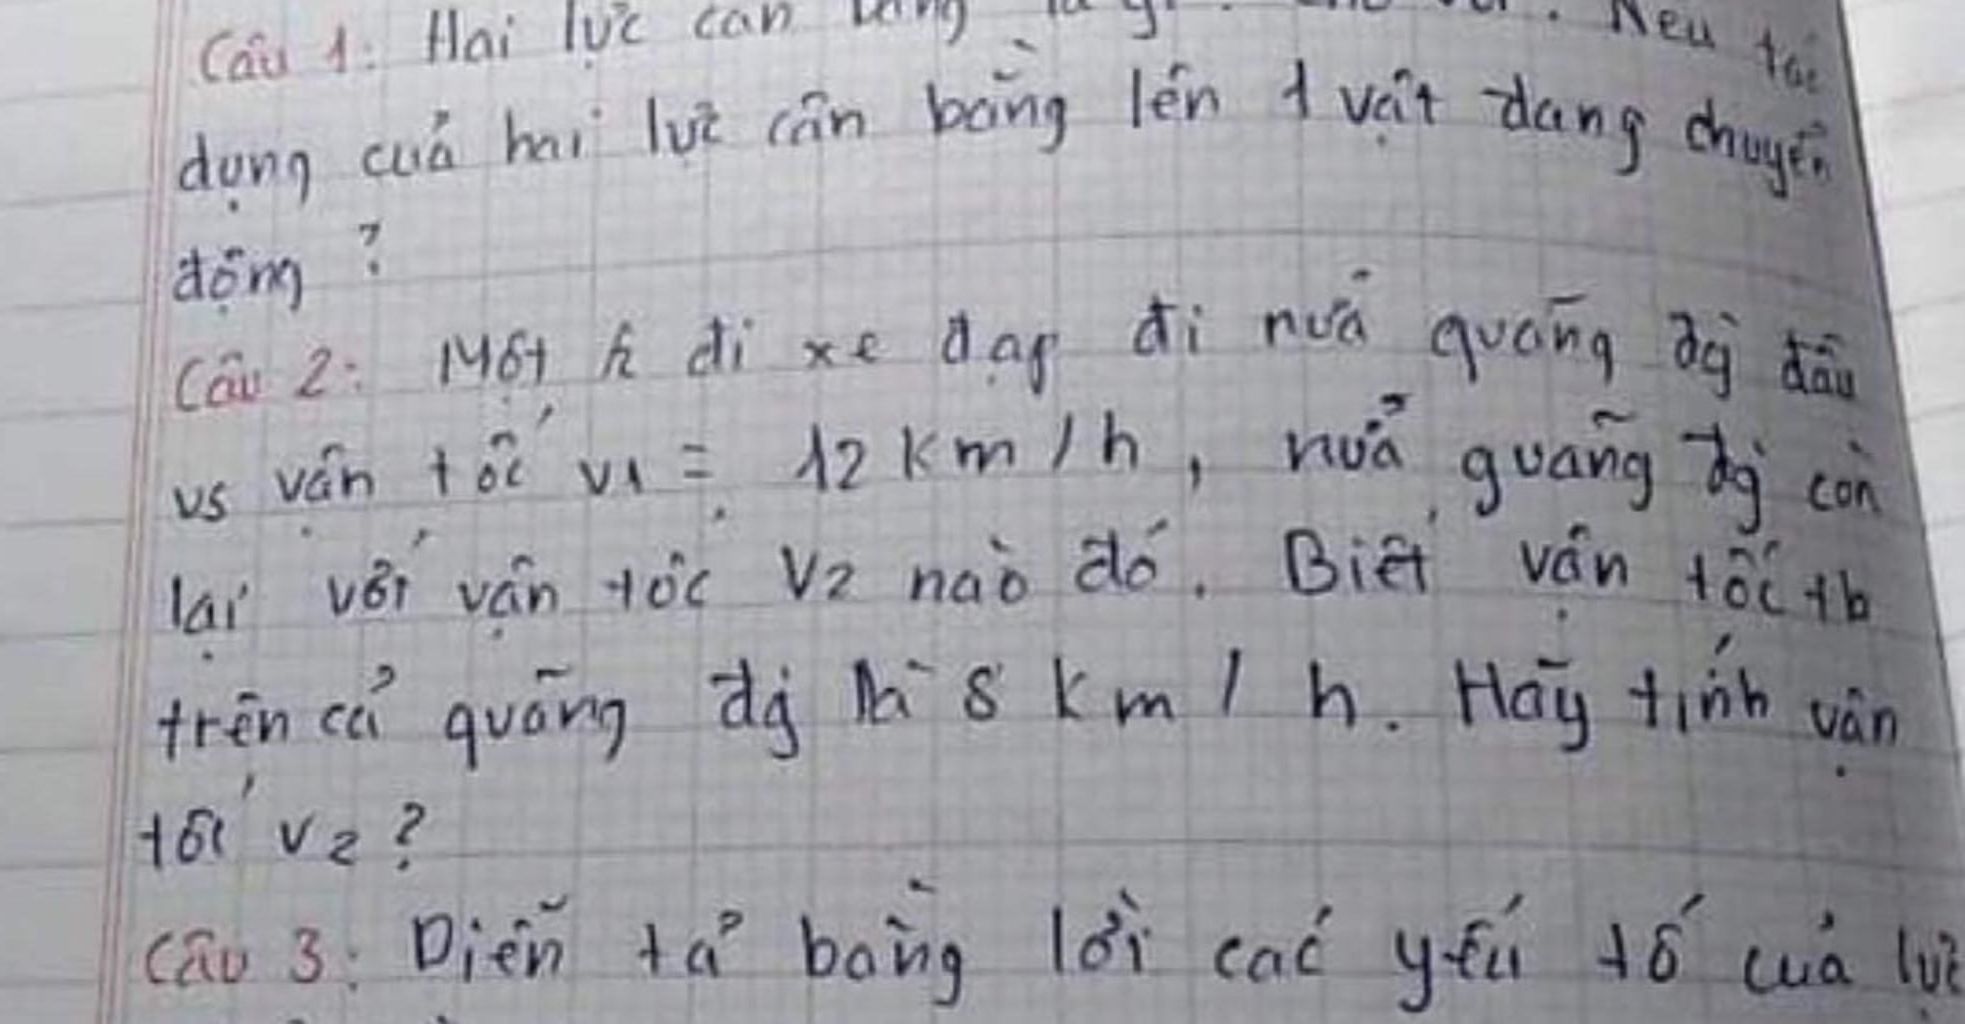 Câu 1: Hai lực cân bằng là gì? . Nếu tác
dụng của hai lực cân bằng lên 1 vật đang chuyển
động ?
Câu 2: Một đi xe đạp đi nửa quãng đg đầu
vs vận tốc v1 = 12 km/h, nửa quãng đg còn
lại với vận tốc V2 nào đó. Biết vận tốc tb
trên cả quãng đg là 8 km/h. Hãy tính vận
tốc v2?
Câu 3: Diễn tả bằng lời các yếu tố của lực